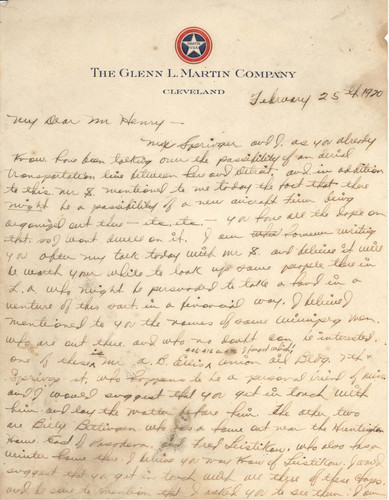 THE GLENN L. MARTIN COMPANY
CLEVELAND
February 25th, 1920
My Dear Mr Henry —
Mr Springer and I, as you already
know have been talking over the possibility of an aerial
transportation line between here and Detroit, and in addition
to this, Mr S. mentioned to me today the fact that there
might be a possibility of a new aircraft firm being
organized out there — etc. etc. — you have all the dope on
that so I wont dwell on it. I am however writing
you after my talk today with Mr S. and believe it will
be worth your while to look up some people there in
L.A. who might be persuaded to take a hand in a
venture of this sort in a financial way. I believe I
mentioned to you the names of some Winnipeg men
who are out there and who no doubt can be interested.
one of these is Mr. A. B. Ellis Union Oil Bldg. 7th +
Springs st, who happens to be a personal friend of mine
and I would suggest that you get in touch with
him and lay the matter before him. The other two
are Billy Bettingen who has a home out near the Huntington
Home East of Pasadena, and Fred Leistikow, who also has a
winter home there. I believe you may know of Leistikow. I would
suggest that you get in touch with all three of these boys
and be sure to mention that I asked you to see them.